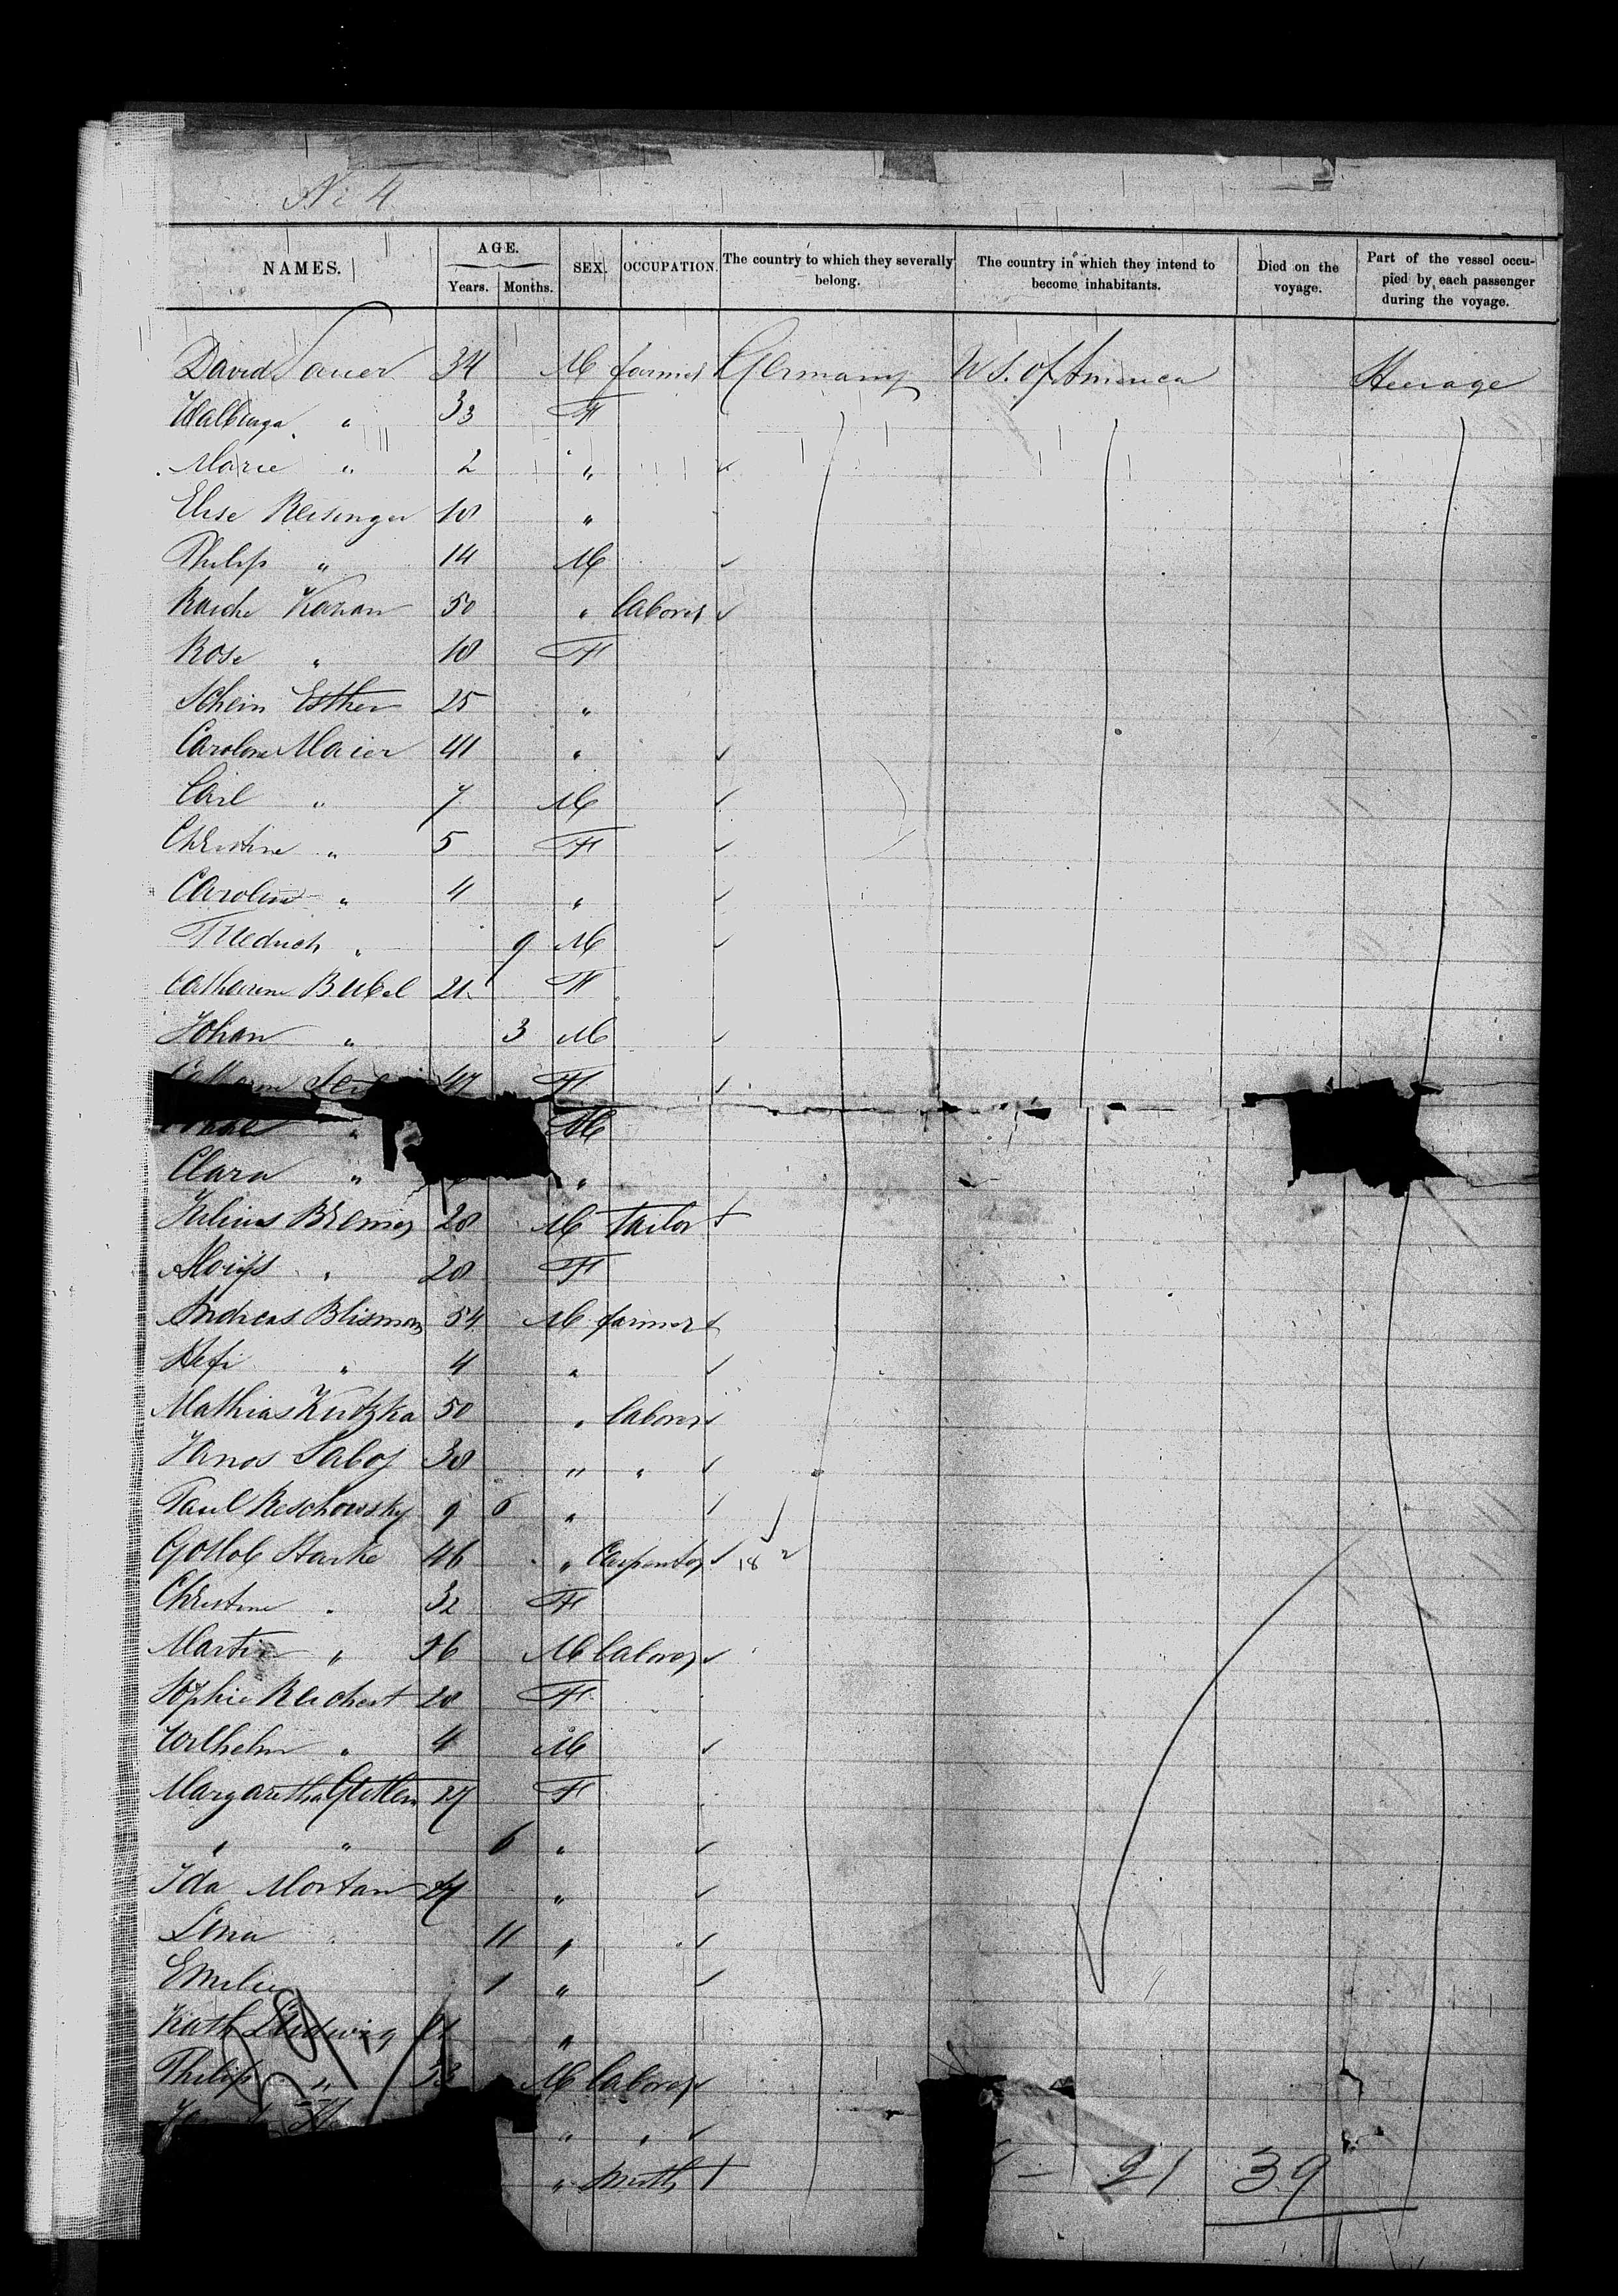 No 4
NAMES. AGE. Years. Months. SEX. OCCUPATION. The country to which they severally belong. The country in which they intend to become inhabitants. Died on the voyage. Part of the vessel occupied by each passenger during the voyage.
David Sauer 34 M farmer Germany U S. of America Steerage
Walburga " 33 F
Marie " 2 "
Elise Reisinger 18 "
Philip " 14 M
Rasche Kazan 50 " laborer
Rose " 18 F
Schein Esther 25 "
Caroline Maier 41 "
Carl " 7 M
Christine " 5 F
Caroline " 4 "
Friedrich " 9 M
Catharine Bubel 21 F
Johan " 3 M
47 F
" M
Clara " "
Julius Bremer 28 M Tailor
" 28 F
Andreas 54 M farmer
" 4 "
Mathias Kutzka 50 " laborer
Janos Saboj 38 " "
Paul Reschowsky 9 6 "
Gottlob Starke 46 " Carpenter 18 2
Christine " 32 F
Martin " 26 M laborer
Sophie Reichert 28 F
Wilhelm " 4 M
Margaretha 27 F
" " 6 "
Ida Mortan 24 "
Lina 11 "
Emilie 1 "
Kath Ludwig "
Philip " 53 M laborer
" " 
" Smith
21 39